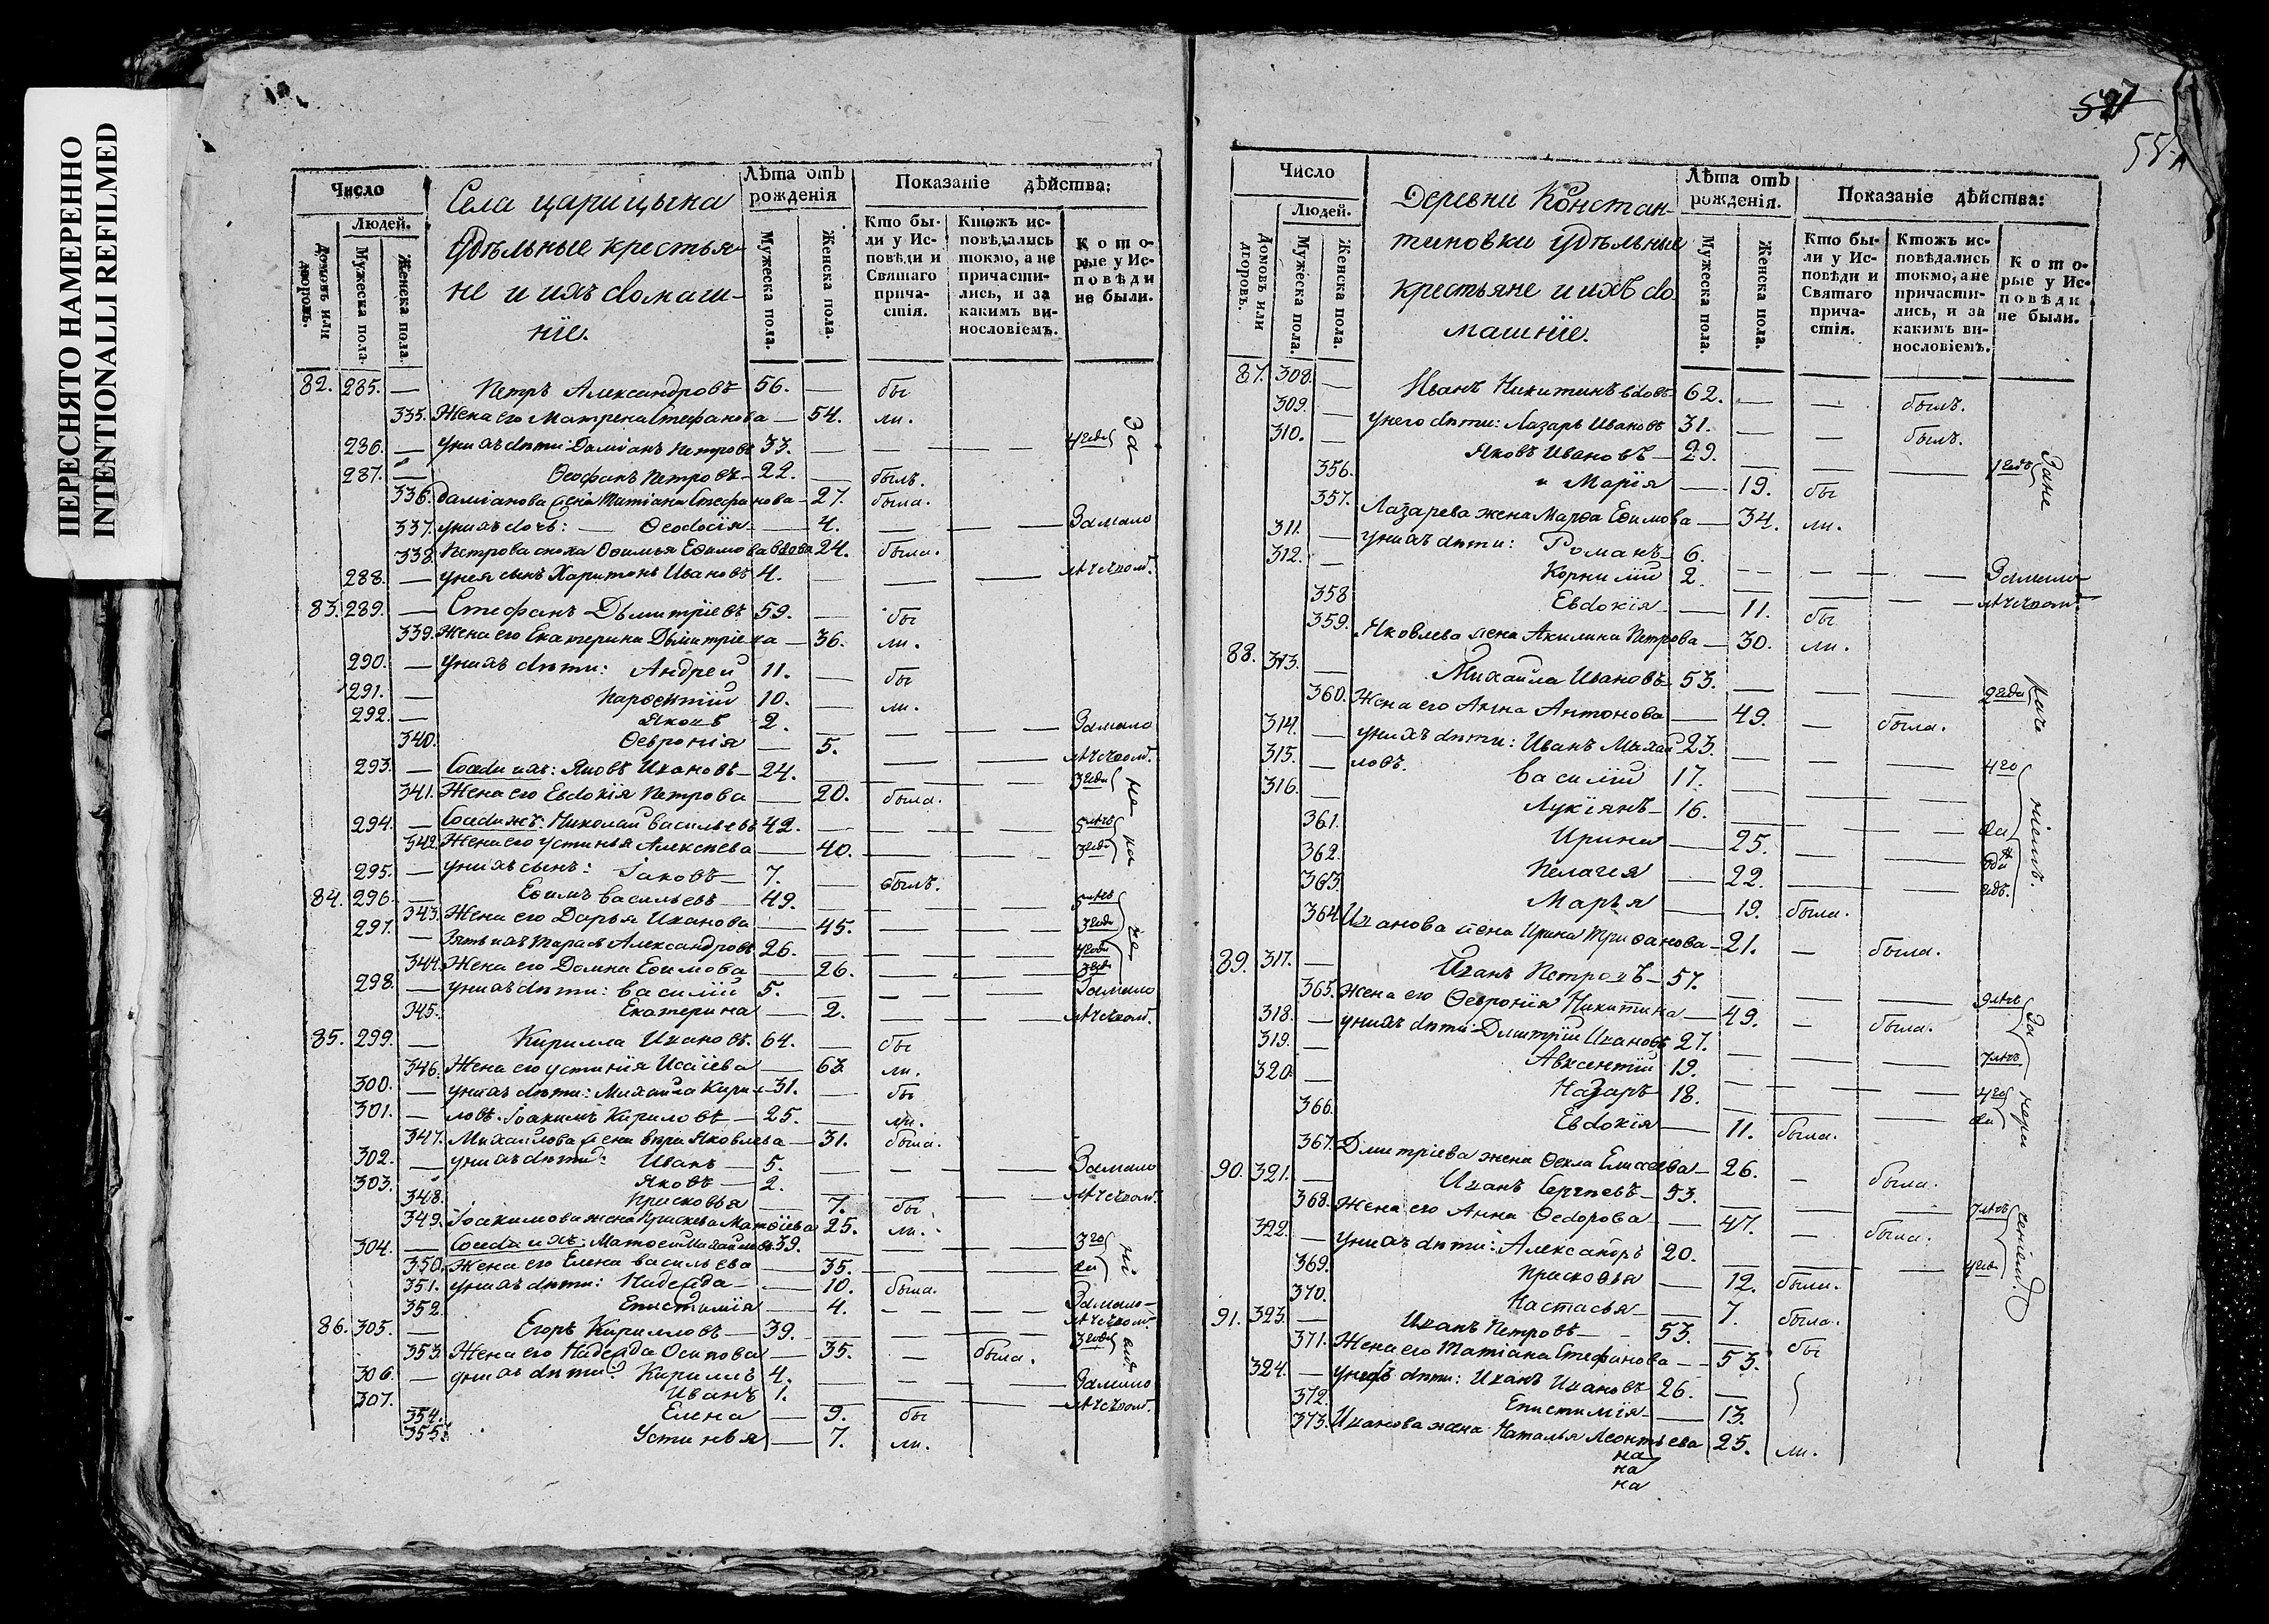 ПЕРЕСНЯТО НАМЕРЕННО
INTENTIONALLI REFILMED
Число
Людей.
Домовъ или дворовъ.
Мужеска пола.
Женска пола.
Села царицына
Удѣльные крестья-
не и ихъ домаш-
ніе.
Лѣта отъ рожденія
Мужеска пола.
Женска пола.
Показаніе дѣйства:
Кто бы-
ли у Ис-
повѣди и
Святаго
прича-
стія.
Ктожъ ис-
повѣдались
токмо, а не
причасти-
лись, и за
какимъ ви-
нословіемъ.
Кото-
рые у Ис-
повѣди
не были.
82. 285. — Петръ Александровъ 56. — бы
335. Жена его Матрена Стефанова — 54. ли.
286. — у нихъ дѣти: Даміанъ Петровъ 33. — — — 4 года
287. — Ѳеофанъ Петровъ 22. — былъ.
336. Даміанова жена Татіана Стефанова — 27. была.
337. у нихъ дочь: — Ѳеодосія — 4. — — Замало
338. Петрова сноха Ѳѳимья Еѳимова вдова 24. была.
288. — у нея сынъ Харитонъ Ивановъ 4. — — лѣтством.
83. 289. — Стефанъ Дѣмитріевъ 59. — бы
339. Жена его Екатерина Дѣмитріева — 36. ли.
290. — у нихъ дѣти: Андрей 11. — бы
291. — Парѳентій 10. — ли.
292. — Яковъ 2. — — — Замало
340. Ѳевронія — 5. — — лѣтством.
293. — Соѣди ихъ: Яковъ Ивановъ 24. — — — 3 года
341. Жена его Евдокія Петрова — 20. была.
294. — Соѣди жъ: Николай Васильевъ 42. — — — 5 лѣтъ
342. Жена его Устинья Алексѣева — 40. — — 3 года
295. — у нихъ сынъ: Іаковъ 7. — былъ.
84. 296. — Еѳимъ Васильевъ 49. — — — 5 лѣтъ
343. Жена его Дарья Иванова — 45. — — 3 года
297. — Зять ихъ Тарасъ Александровъ 26. — — — 4 года
344. Жена его Домна Еѳимова — 26. — — 3 года
298. — у нихъ дѣти: Василій 5. — — — Замало
345. Екатерина — 2. — — лѣтством.
85. 299. — Кирилла Ивановъ 64. — бы
346. Жена его Устинія Исаіева — 63. ли.
300. — у нихъ дѣти: Михаила Кири- 31. — бы
301. — ловъ. Іоакимъ Кириловъ 25. — ли.
347. Михайлова жена Вѣра Яковлева — 31. была.
302. — у нихъ дѣти: Иванъ 5. — — — Замало
303. Яковъ 2. — — — лѣтством.
348. Прасковья — 7. бы
349. Іоакимова жена Прасковья Матѳіева 25. ли.
304. — Соѣди ихъ: Матѳей Михайловъ 39. — — — 3 го
350. Жена его Елена Васильева — 35. — — да
351. у нихъ дѣти: Надежда — 10. была.
352. Епистимія — 4. — — Замало-
86. 305. — Егоръ Кирилловъ 39. — — — 3 года
353. Жена его Надежда Осипова — 35. — была.
306. — у нихъ дѣти: Кириллъ 4. — — — Замало
307. — Иванъ 1. — — — лѣтством.
354. Елена — 9. бы
355. Устинья — 7. ли.
55
Число
Людей.
Домовъ или дворовъ.
Мужеска пола.
Женска пола.
Деревни Констан-
тиновки удѣльные
крестьяне и ихъ до
машніе.
Лѣта отъ рожденія.
Мужеска пола.
Женска пола.
Показаніе дѣйства:
Кто бы-
ли у Ис-
повѣди и
Святаго
прича-
стія.
Ктожъ ис-
повѣдались
токмо, а не
причасти-
лись, и за
какимъ ви-
нословіемъ.
Кото-
рые у Ис-
повѣди
не были.
87. 308. — Иванъ Никитинъ вдовъ 62. — — былъ.
309. — у него дѣти: Лазарь Ивановъ 31. — — былъ.
310. — Яковъ Ивановъ 29. — — — 1 годъ
356. и Марія — 19. бы
357. Лазарева жена Марѳа Еѳимова — 34. ли.
311. — у нихъ дѣти: Романъ 6. — — — Замало
312. — Корнилій 2. — — — лѣтством.
358. Евдокія — 11. бы
359. Яковлева жена Акилина Петрова — 30. ли.
88. 313. — Михайла Ивановъ 53. — — — 2 года
360. Жена его Анна Антонова — 49. — была.
314. — у нихъ дѣти: Иванъ Михай- 23. — — — 4 го
315. — ловъ. Василій 17. — — —
316. — Лукіянъ 16. — — — да
361. Ирина — 25. — —
362. Пелагея — 22. — —
363. Марья — 19. была.
364. Иванова жена Ирина Триѳанова — 21. — была.
89. 317. — Иванъ Петровъ 57. — — — 9 лѣтъ
365. Жена его Ѳевронія Никитина — 49. — была.
318. — у нихъ дѣти: Дмитрій Ивановъ 27. — — — 7 лѣтъ
319. — Авксентій 19. — — — 4 го
320. — Назаръ 18. — — — да
366. Евдокія — 11. была.
367. Дмитріева жена Ѳекла Елисеева — 26. — была.
90. 321. — Иванъ Сергѣевъ 53. — — — 7 лѣтъ
368. Жена его Анна Ѳедорова — 47. — была.
322. — у нихъ дѣти: Александръ 20. — — — 4 года
369. Прасковья — 12. была.
370. Настасья — 7. была.
91. 323. — Иванъ Петровъ 53. — бы
371. Жена его Татіана Стефанова — 53.
324. — у нихъ дѣти: Иванъ Ивановъ 26. —
372. Епистимія — 13.
373. Иванова жена Наталья Леонтьева 25. ли.
на
на
на